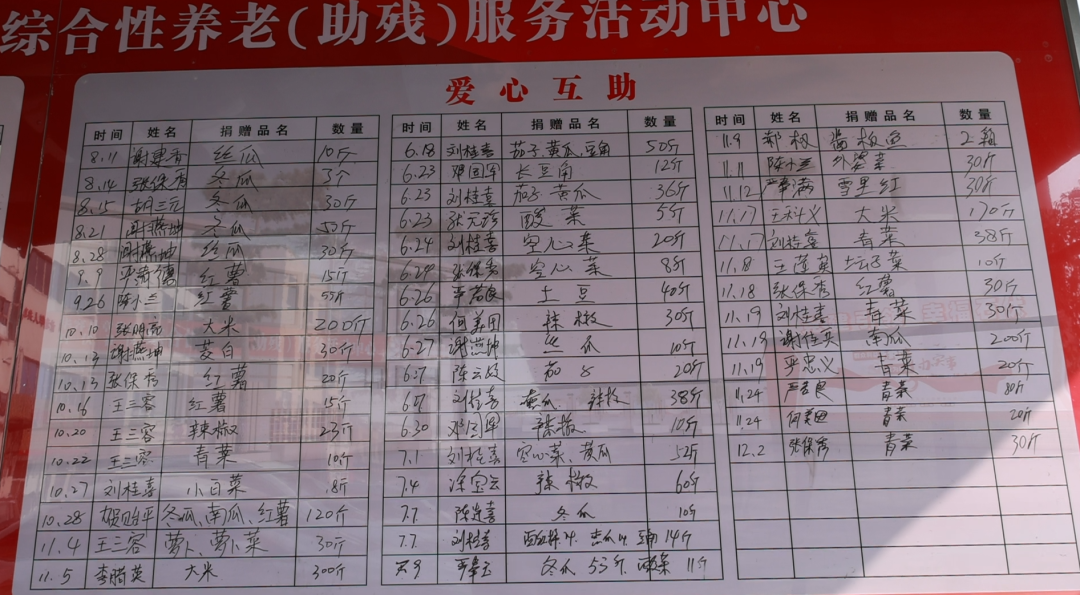 综合性养老(助残)服务活动中心
爱心互助
时间 姓名 捐赠品名 数量
8.11 谢建香 丝瓜 10斤
8.14 张保秀 冬瓜 3个
8.15 胡三元 冬瓜 30斤
8.21 谢燕坤 冬瓜 50斤
8.28 谢燕坤 丝瓜 30斤
9.9 红薯 15斤
9.26 陈小兰 红薯 55斤
10.10 张明亮 大米 200斤
10.13 谢燕坤 茭白 30斤
10.13 张保秀 红薯 20斤
10.16 王三容 红薯 15斤
10.20 王三容 辣椒 23斤
10.22 王三容 青菜 10斤
10.27 刘桂喜 小白菜 8斤
10.28 胡贻平 冬瓜、南瓜、红薯 120斤
11.4 王三容 萝卜、萝卜菜 30斤
11.5 李腊英 大米 300斤
时间 姓名 捐赠品名 数量
6.18 刘桂喜 茄子、黄瓜、豆角 50斤
6.23 邓国军 长豆角 12斤
6.23 刘桂喜 茄子 黄瓜 36斤
6.23 张元珍 酸菜 5斤
6.24 刘桂喜 空心菜 20斤
6.24 张保秀 空心菜 8斤
6.26 严若良 土豆 40斤
6.26 何美田 辣椒 30斤
6.27 谢燕坤 丝瓜 10斤
6.27 茄子 20斤
6.27 刘桂喜 黄瓜 辣椒 38斤
6.30 邓国军 辣椒 10斤
7.1 刘桂喜 空心菜、黄瓜 52斤
7.4 涂宝云 辣椒 60斤
7.7 陈连喜 冬瓜 10斤
7.7 刘桂喜 14斤
冬瓜 55斤 11斤
时间 姓名 捐赠品名 数量
11.9 郑极 2颗
11.11 陈小兰 外婆菜 30斤
11.12 雪里红 30斤
11.17 王科义 大米 170斤
11.17 刘桂喜 青菜 38斤
11.8 王莲英 坛子菜 10斤
11.18 张保秀 红薯 30斤
11.19 刘桂喜 青菜 30斤
11.19 谢佳英 南瓜 200斤
11.19 严忠义 青菜 20斤
11.24 严若良 青菜 80斤
11.24 何美田 青菜 20斤
12.2 张保秀 青菜 30斤